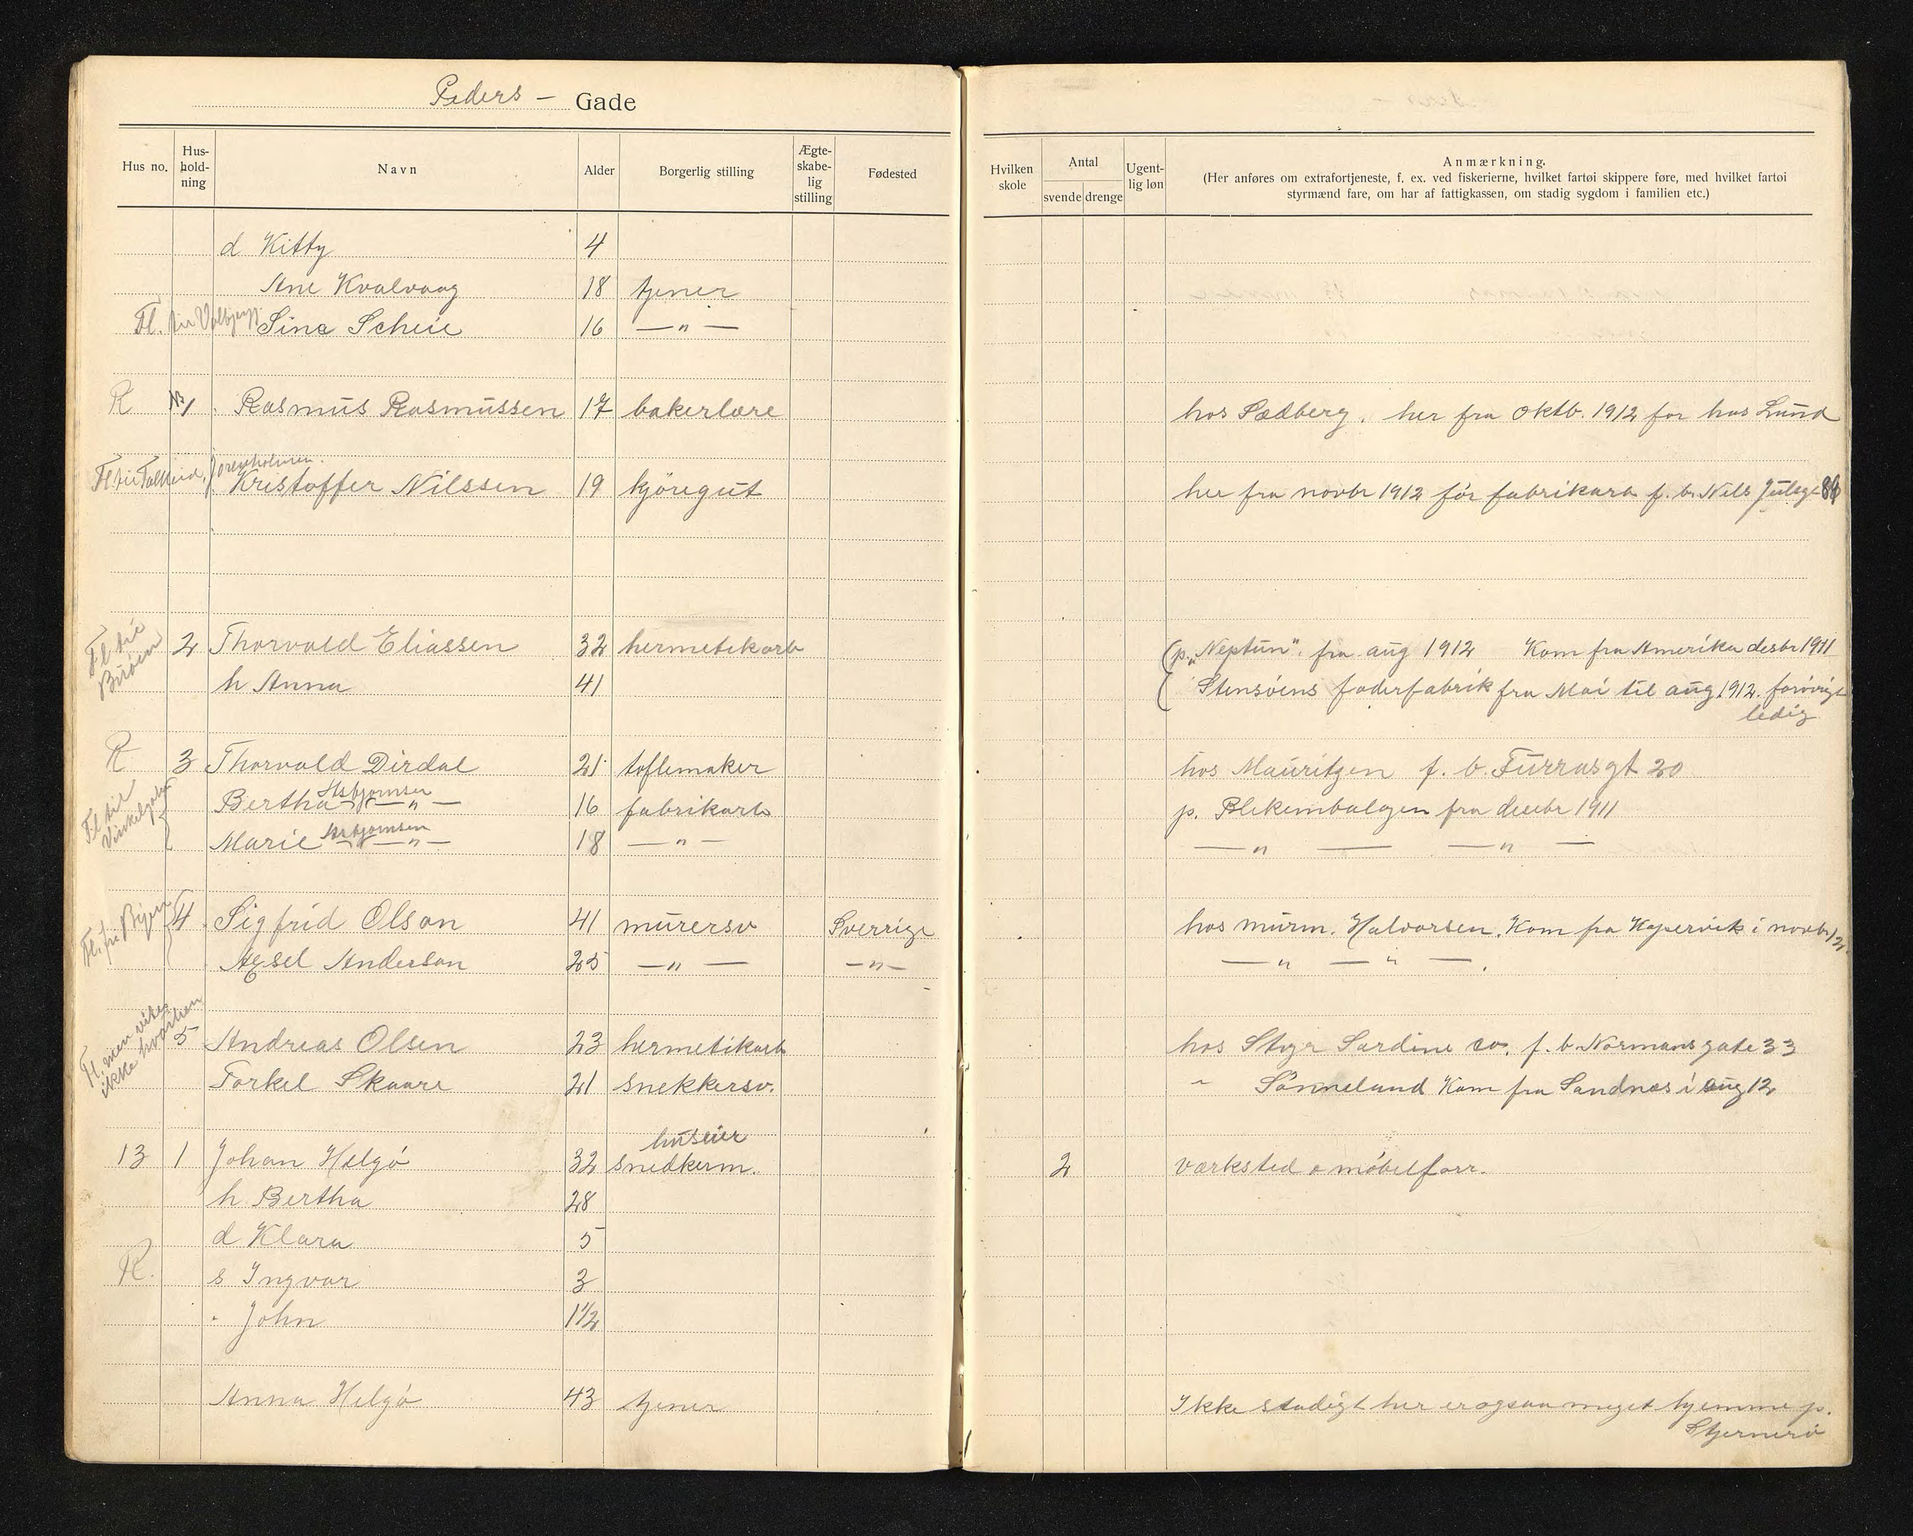 Peders - Gade
Hus no. Hus-hold-ning Navn Alder Borgerlig stilling Ægte-skabe-lig stilling Fødested Hvilken skole Antal svende drenge Ugent-lig løn Anmærkning.
(Her anføres om extrafortjeneste, f. ex. ved fiskerierne, hvilket fartøi skippere føre, med hvilket fartøi
styrmænd fare, om har af fattigkassen, om stadig sygdom i familien etc.)
d Kitty 4
Ane Kvalvaag 18 tjener
Fl. Sina Scheie 16 — " —
R 1 Rasmus Rasmussen 17 bakerlære hos Sædberg. her fra oktb. 1912 før hos Lund
Fl til
Kristoffer Nilssen 19 kjøregut her fra novbr 1912 før fabrikarb f. b. Nils Juelsgt 89
Fl til
2 Thorvald Eliassen 32 hermetikarb (p. "Neptun". fra aug 1912 Kom fra Amerika desbr 1911
h Anna 41 ( Stensöens foderfabrik fra Mai til aug 1912. forøvrigt
ledig
R 3 Thorvald Dirdal 21 toflemaker hos Mauritzen f. b. Furrasgt 20
Fl til Vinkelgaten
Bertha Asbjørnsen — " — 16 fabrikarb p. Blikemballagen fra desebr 1911
Marie Asbjørnsen — " — 18 — " — — " — — " —
Fl. fra Byen 4 Sigfrid Olson 41 murersv Sverrige hos murm. Halvorsen. Kom fra Kopervik i novbr 12
Axsel Anderson 25 — " — — " — — " — " — .
Fl. men vites ikke hvorhen
5 Andreas Olsen 23 hermetikarb hos Styr Sardine co. f. b. Normansgate 33
Torkel Skaare 21 snekkersv. " Sønneland Kom fra Sandnæs i aug 12
huseier
13 1 Johan Helgø 32 snedkerm. 2 værksted o møbelforr.
h Bertha 28
d Klara 5
R. s Ingvar 3
" John 1 1/2
Anna Helgø 43 tjener Ikke stadigt her er ogsaa meget hjemme p.
Stjernerø